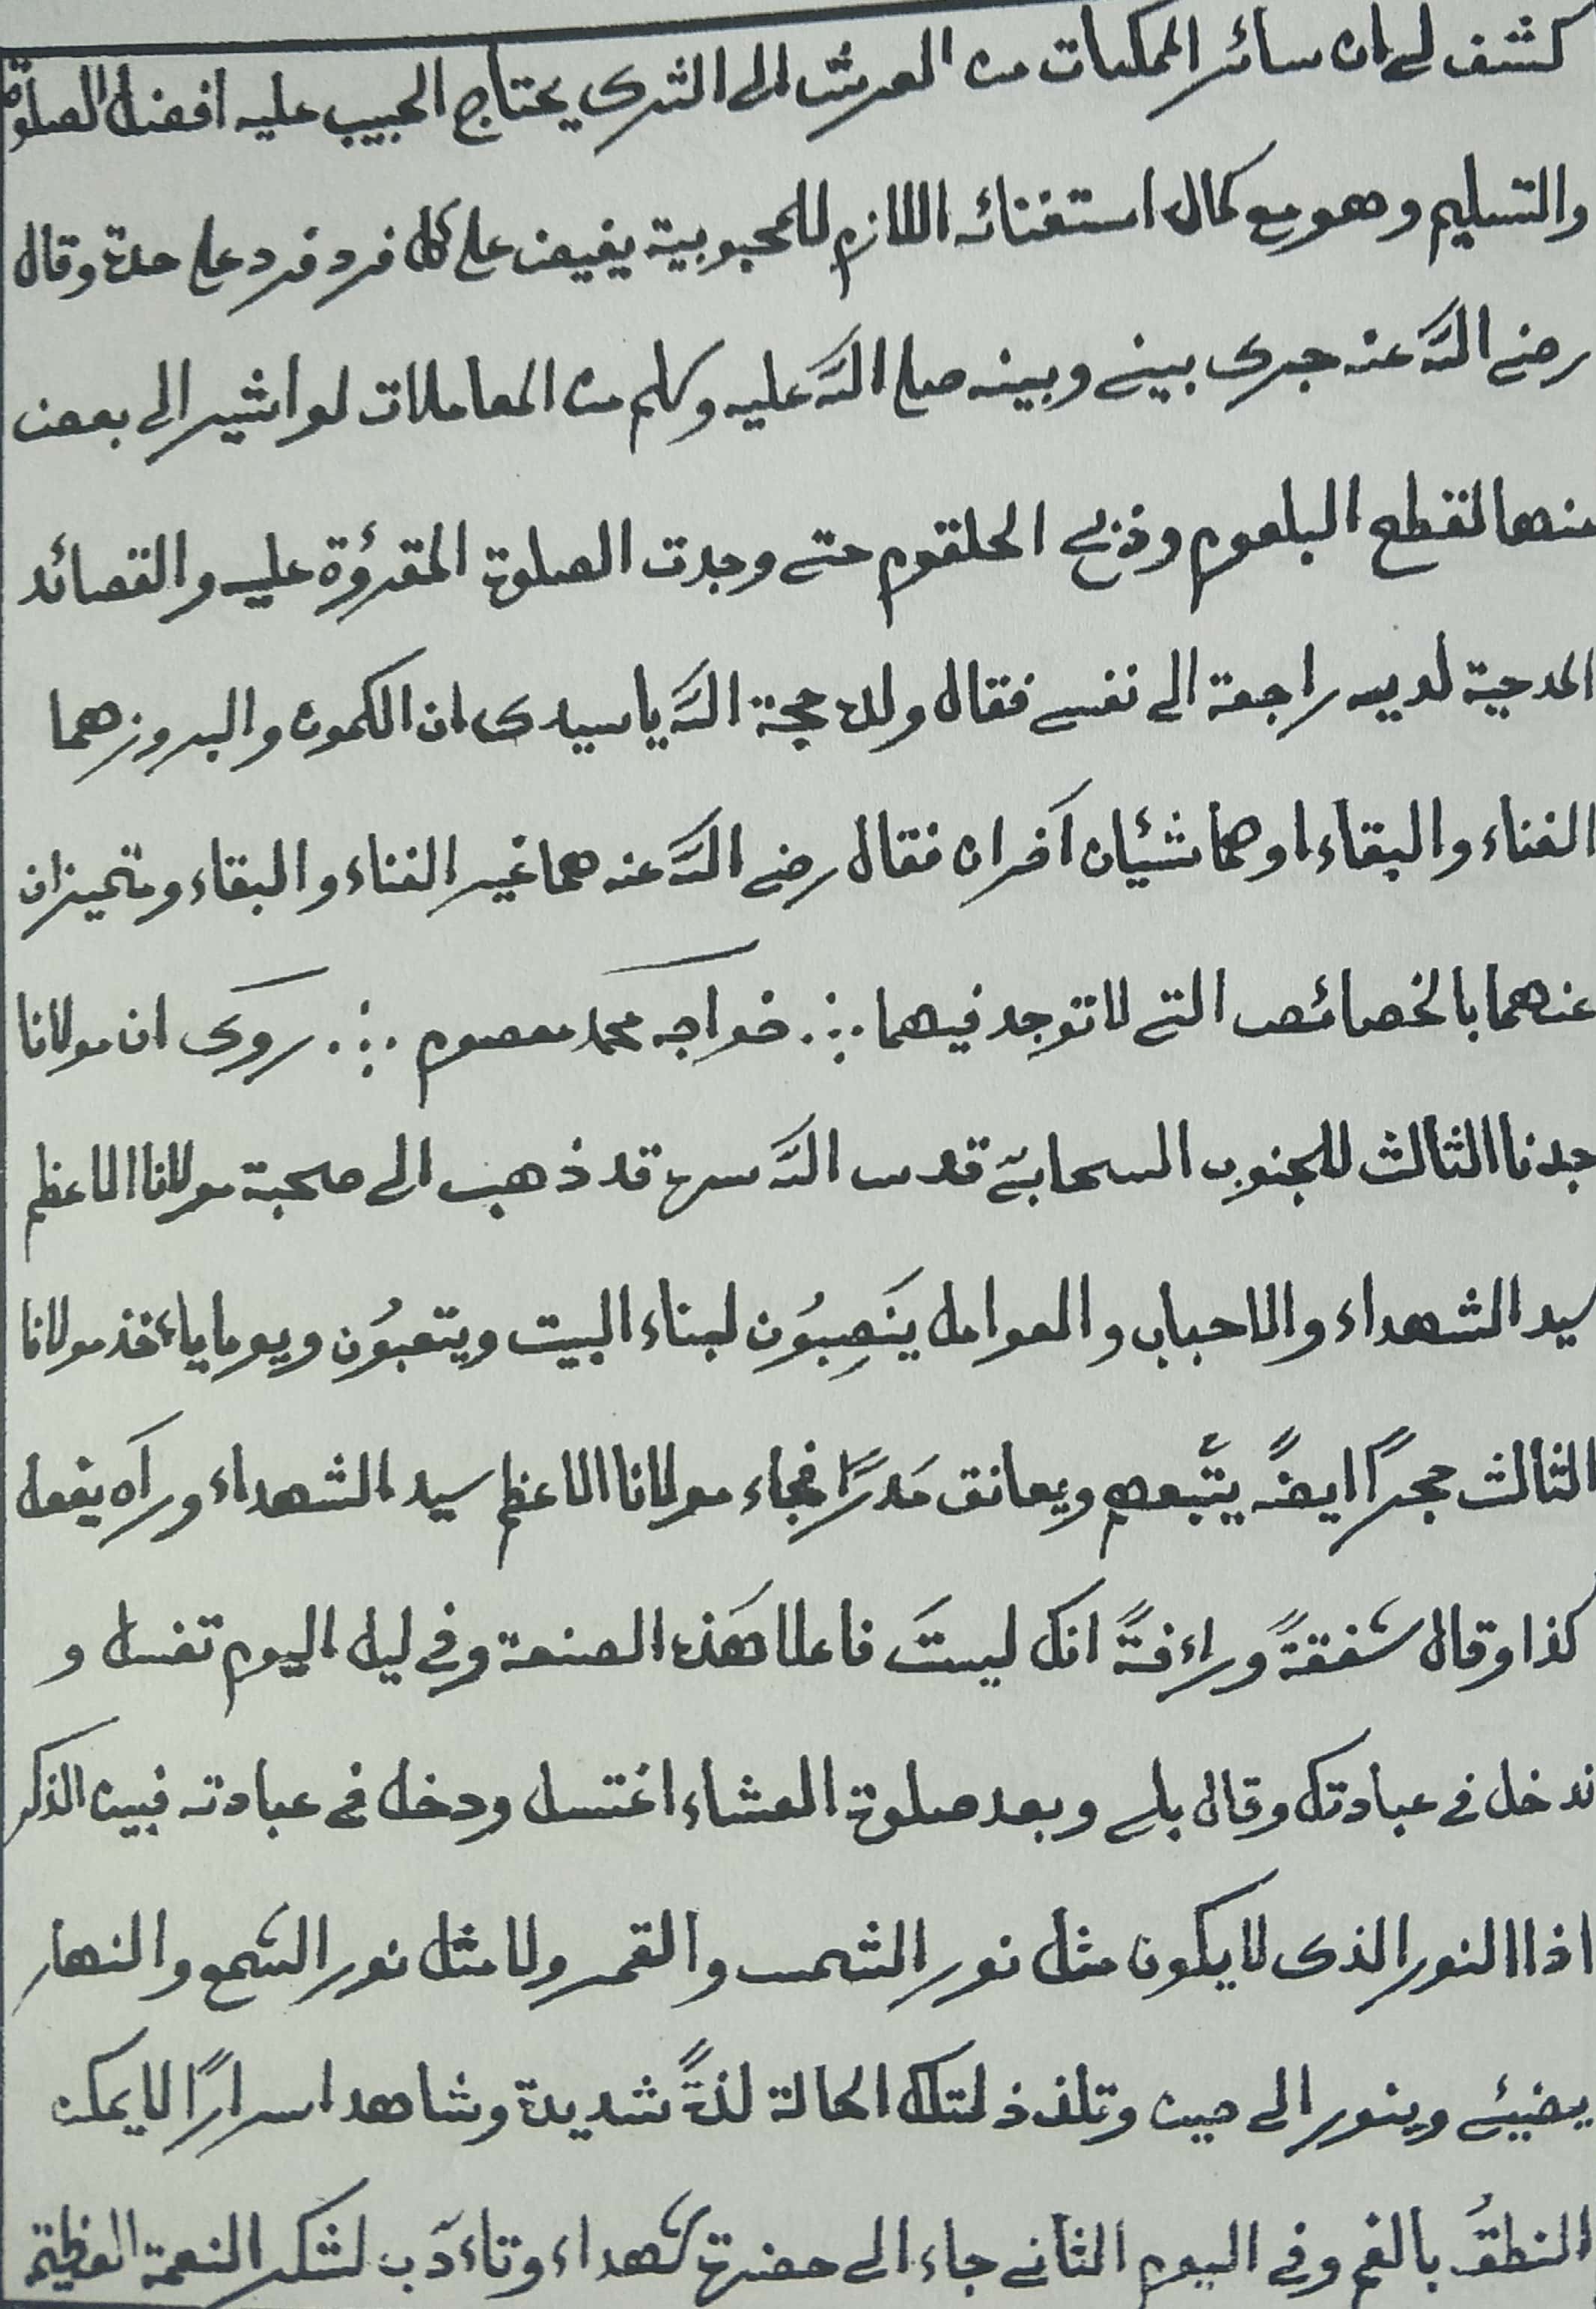 كشف لے ان سائر الممكنات من العرش الى الثرى يحتاج الحبيب عليه افضل الصلوة
والتسليم وهو مع كمال استغنائه اللازم للمحبوبية يفيض علے كل فرد فرد علے حدة وقال
رضے اللّه عنه جرى بينے وبينه صلے اللّه عليه وسلم من المعاملات لو اشير الى بعض
منها لقطع البلعوم وذبح الحلقوم حتے وجدت الصلوة المقرؤة عليه والقصائد
المدحية لديه راجعة الے نفسے فقال ولده حجة اللّه يا سيدى ان الكمون والبروز هما
الفناء والبقاء او هما شئيان آخران فقال رضے اللّه عنه هما غير الفناء والبقاء ومتميزان
عنهما بالخصائص التے لا توجد فيهما ∴ خواجه محمد معصوم ∴ روى ان مولانا
جدنا الثالث للجنوب السحابے قدس اللّه سره قد ذهب الى صحبة مولانا الاعظم
سيد الشهداء والاحباب والعوامل يَنصِبُون لبناء البيت ويتعبُون ويوما ياءخذ مولانا
الثالث حجرًا ايضًا يتّبعهم ويعانق مَدرًا فجاء مولانا الاعظم سيد الشهداء ورآه يفعل
كذا وقال شفقةً وراءفةً انك ليستَ فاعلا هَذه الصنعة وفي ليل اليوم تغسل و
تدخل فى عبادتك وقال بلے وبعد صلوة العشاء اغتسل ودخل فى عبادته فبين الذكر
اذا النور الذى لا يكون مثل نور الشمس والقمر ولا مثل نور الشمع والنهار
يضيئے وينور الى حين وتلذذ لتلك الحالة لذةً شديدة وشاهد اسرارًا لا يمكن
النطقُ بالفم وفي اليوم الثانے جاء الى حضرة شهداء وتاءدّب لشكر النعمة العظيمة